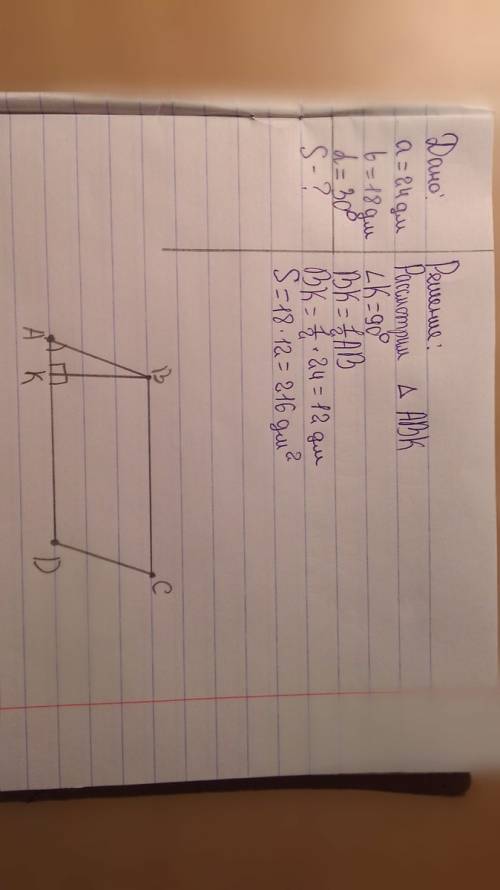 Дано:
a = 24 дм
b = 18 дм
α = 30°
S - ?
Решение:
Рассмотрим △ ABK
∠K = 90°
BK = 1/2 AB
BK = 1/2 · 24 = 12 дм
S = 18 · 12 = 216 дм²
B
C
A
K
D